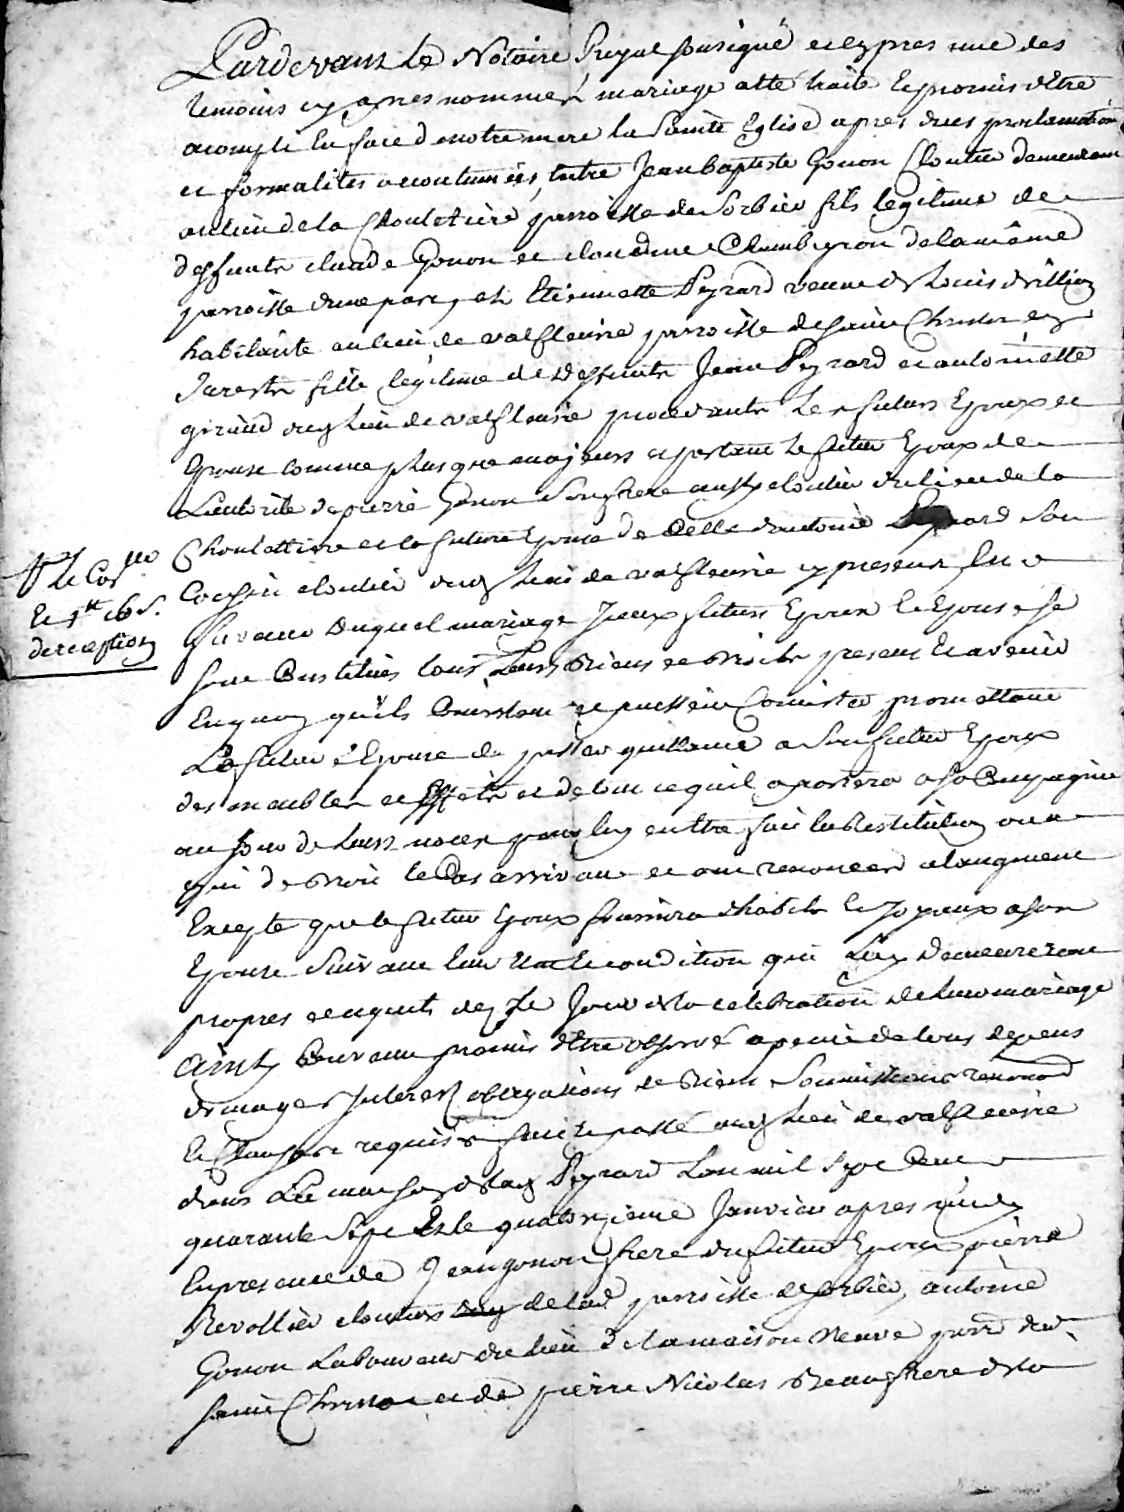 Pardevant le Notaire Royal sousigné et en presence des
temoins cy apres nommés, mariage a été traité et promis d'etre
acompli en face de notre mere la Sainte Eglise apres dues proclamations
et formalités acoutumées, entre Jean baptiste Gonon Cloutier demeurant
au lieu de la Choulétière parroisse de Sorbier fils legitime de
deffunts claude Gonon et claudine Chambeyron de la même
parroisse d'une part, et Etiennette Peyrard veuve de Louis
habitante au lieu de valfleurie parroisse de Saint Christo en
Jarest fille legitime de deffunts Jean Peyrard et antoinette
giraud dud lieu de valfleurie procedants les futurs Epoux et
Epouse comme plus que majeurs et pourtant le futur Epoux de
L'autorité de pierre Gonon Son frere aussy cloutier du lieu de la
Choulettiere et la future Epouse de Celle d'antoine Peyrard Son
Cousin cloutier dud lieu de valfleurie cy present En
faveur duquel mariage Iceux futurs Epoux et Epouse se
sont Constitués tous Leurs Biens et Droits presens et avenir
En quoy qu'ils Consistent et puissent Consister promettant
La future Epouse de passer quittance a Son futur Epoux
des meubles et Effets et de tout ce quil aportera a sa Compagnie
au jour de leurs noces pour luy en etre fait la Restitution ou a
qui de Droit le Cas arrivant et ont renoncé a l'augment
Excepté que le futur Epoux fournira d'habits et Joyaux a son
Epouse Suivant leur Etat et condition qui Luy Demeureront
propres et aquits dez le Jour de la celebration de leur mariage
Ainsy Convenu promis d'Etre observé a peine de tous depens
domages Interests obligations de Biens Soumissions renond
et Clauses requises fait et passé aud lieu de valfleurie
dans La maison dud Peyrard L'an mil Sept Cent
quarante Sept Et le quatorzieme Janvier apres midy
En presence de Jean gonon frere du futur Epoux pierre
Revollier cloutiers de lad parroisse de Sorbier, antoine
Gonon Laboureur du lieu de la maison Neuve parr dud
Saint Christo et de pierre Nicolas Beaufrere de la